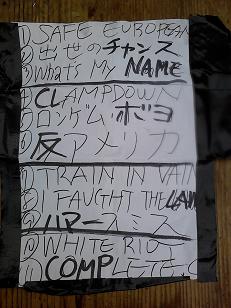 ①. SAFE EUROPEAN
② 出世のチャンス
③ WHAT'S MY NAME
④ CLAMPDOWN
⑤ ロンゲム・ボヨ
⑥ 反アメリカ
⑦ TRAIN IN VAIN
⑧ I FAUGHT THE LAW
⑨ ハマースミス
⑩ WHITE RIOT
⑪ COMPLETE